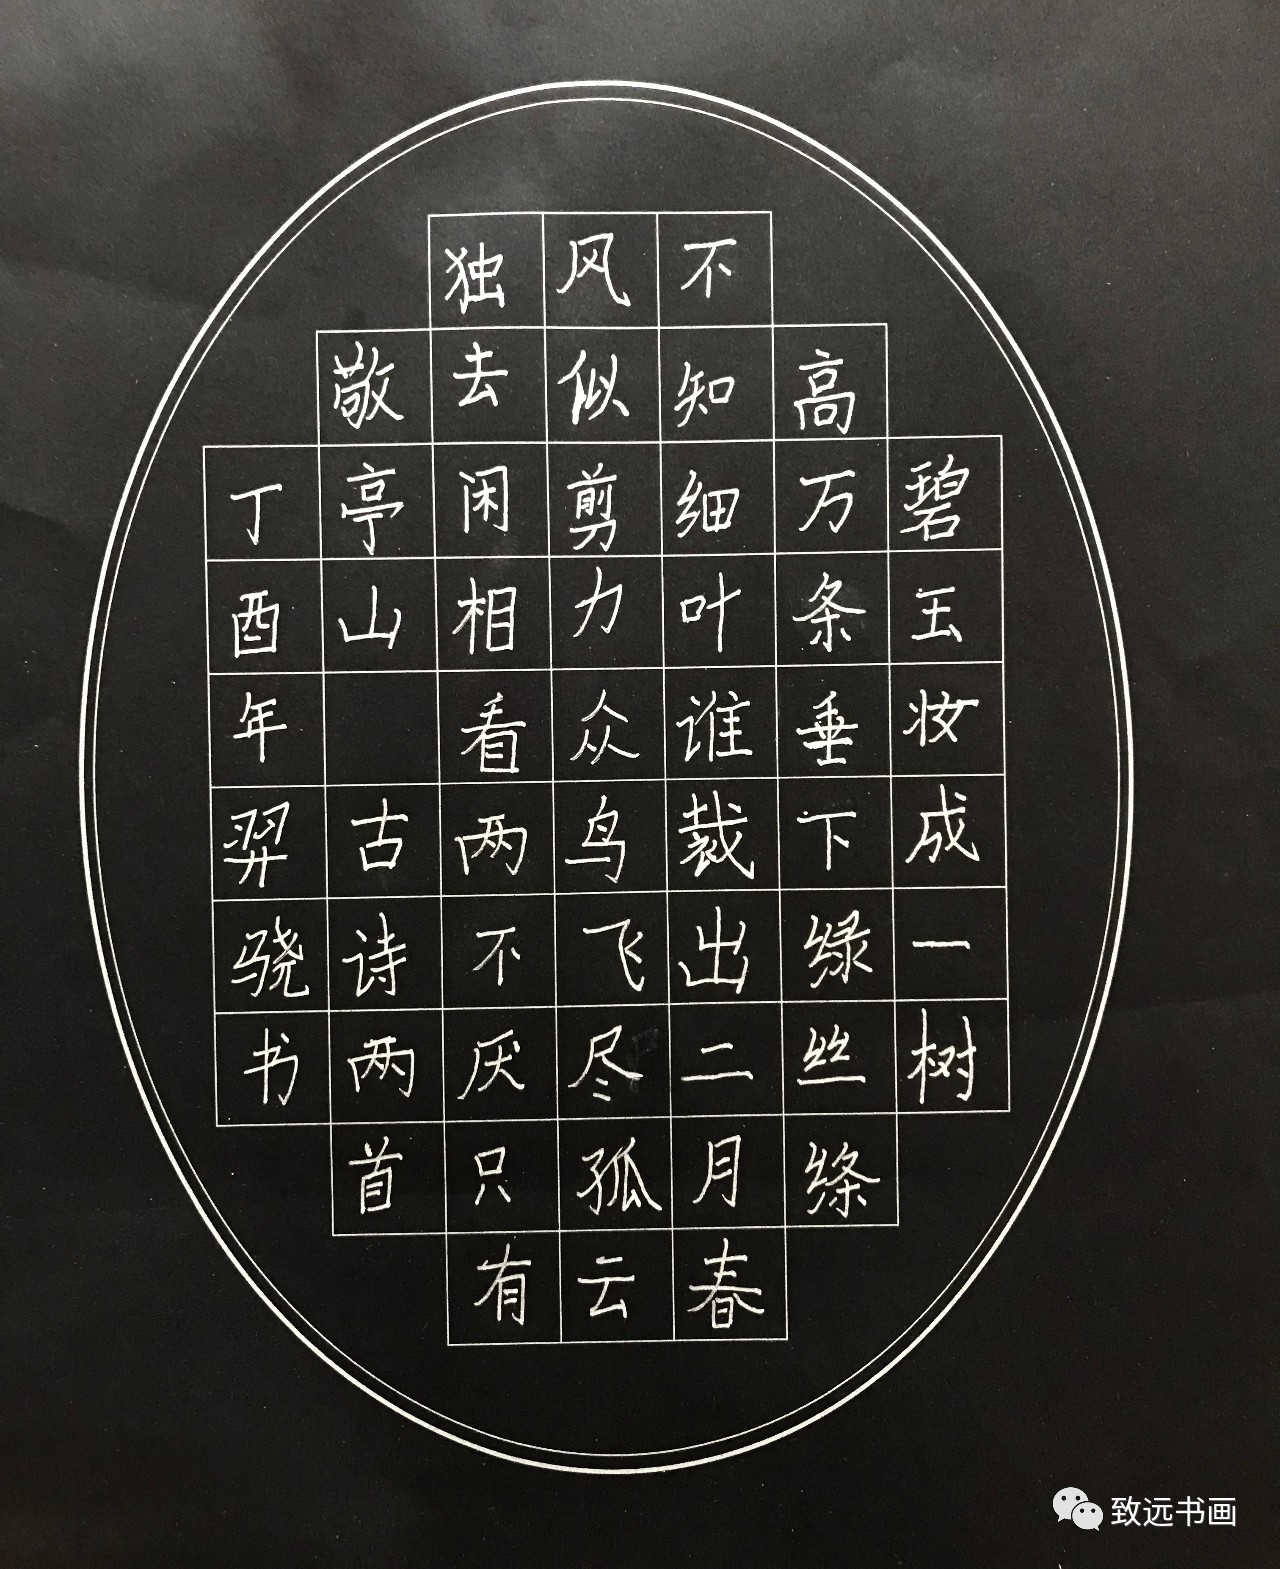 碧玉妆成一树
高万条垂下绿丝绦
不知细叶谁裁出二月春
风似剪力众鸟飞尽孤云
独去闲相看两不厌只有
敬亭山 古诗两首
丁酉年羿骁书
致远书画